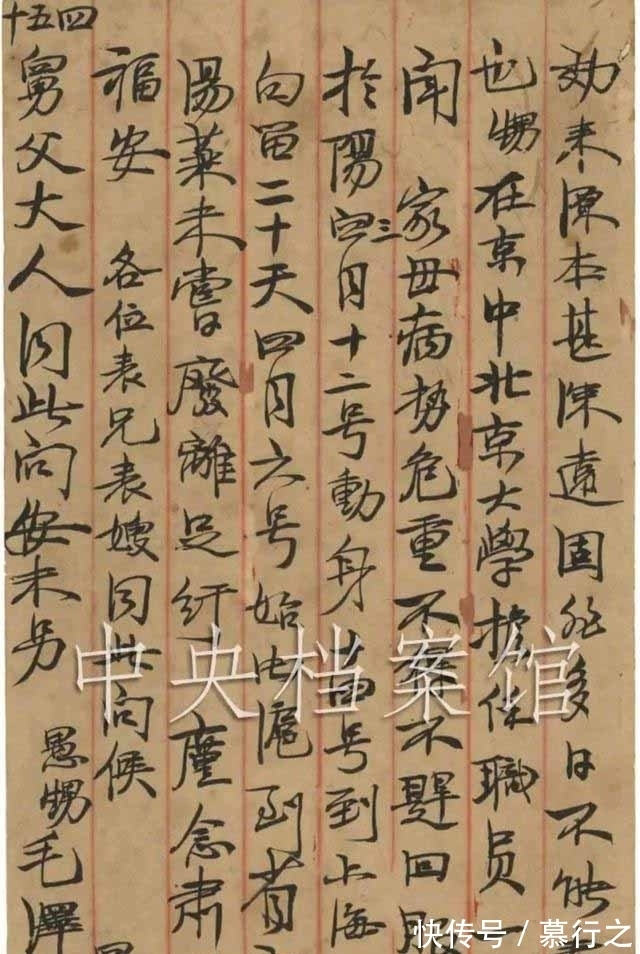 効来源本甚深遠固非多日不能
也甥在京中北京大學擔任職員一
闻 家母病势危重不得不趕回服
於陽三月十二号動身十四号到上海
勾留二十天四月六号始由滬到省
湯藥未嘗廢離足紓 廑念肃
福安 各位表兄表嫂同此问候
四五十
舅父大人同此问安未另
愚甥毛澤
中央档案馆
快传号/慕行之